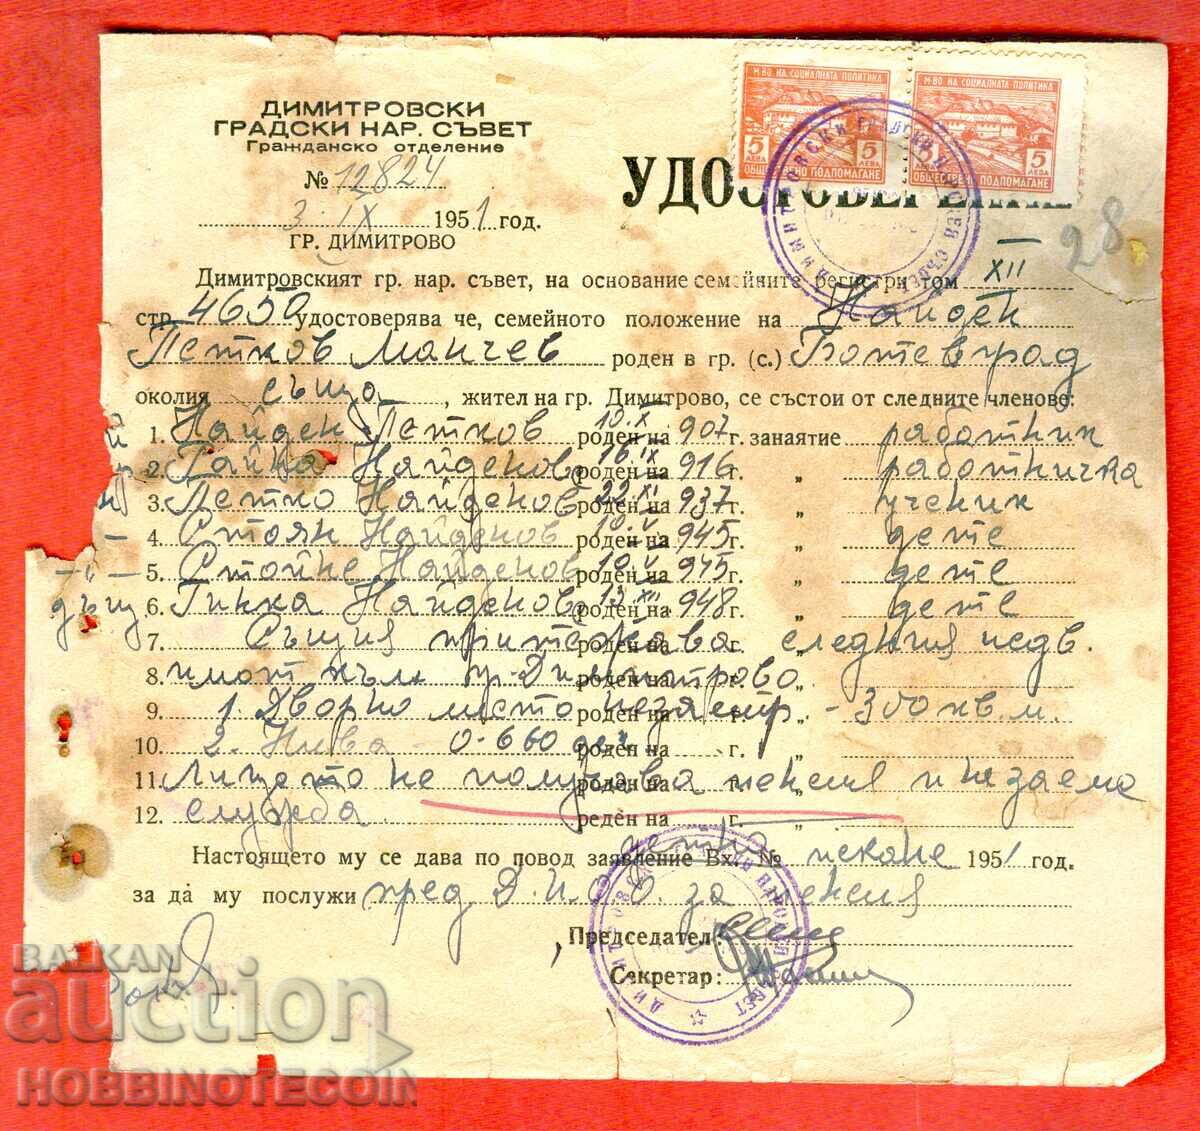 ДИМИТРОВСКИ
ГРАДСКИ НАР. СЪВЕТ
Гражданско отделение
№ 12824
3. IX 1951 год.
ГР. ДИМИТРОВО
М-ВО НА СОЦИАЛНАТА ПОЛИТИКА
5 ЛЕВА 5 ЛЕВА
ОБЩЕСТВЕНО ПОДПОМАГАНЕ
М-ВО НА СОЦИАЛНАТА ПОЛИТИКА
5 ЛЕВА 5 ЛЕВА
ОБЩЕСТВЕНО ПОДПОМАГАНЕ
УДОСТОВЕРЕНИЕ
28
Димитровският гр. нар. съвет, на основание семейните регистри том XII
стр. 4650 удостоверява че, семейното положение на Найден
Петков Манчев роден в гр. (с.) Ботевград
околия също, жител на гр. Димитрово, се състои от следните членове:
1. Найден Петков роден на 10.X 907 г. занаятие работник
2. Гайка Найденова роден на 16.IX 916 г. „ работничка
3. Петко Найденов роден на 22.XI 937 г. „ ученик
4. Стоян Найденов роден на 10.V 945 г. „ дете
— „ — 5. Стойне Найденов роден на 10.V 945 г. „ дете
дъщ 6. Гинка Найденова роден на 13.XII 948 г. „ дете
7. Същия притежава роден на г. „ следния недв.
8. имот към гр. Димитрово роден на г. „
9. 1. Дворно место незастр. роден на г. „ - 300 кв. м.
10. 2. Нива - 0.660 дек. роден на г. „
11. Лицето не получава роден на г. „ пенсия и не заема
12. служба. роден на г. „
Настоящето му се дава по повод заявление Вх. № устно искане 1951 год.
за да му послужи пред Д.И.О.О. за пенсия
Председател:
Секретар:
ДИМИТРОВСКИ ГРАДСКИ НАРОДЕН СЪВЕТ
ДИМИТРОВСКИ ГРАДСКИ НАРОДЕН СЪВЕТ
BALKAN
auction
HOBBINOTECOIN